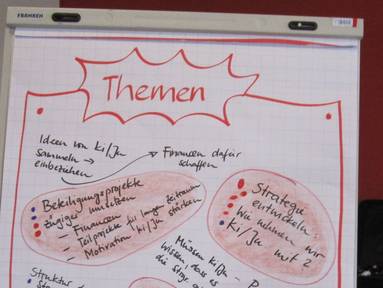 FRANKEN
Themen
Ideen von Ki/Ju
sammeln →
einbeziehen
→ Finanzen dafür
schaffen
Beteiligungsprojekte
zügiger umsetzen
– Finanzen
– Teilprojekte für langen Zeitraum
– Motivation Ki/Ju stärken
Strategie
entwickeln:
Wie nehmen wir
Ki/Ju mit?
Müssen Ki/Ju –
wissen, dass es
die
Struktur